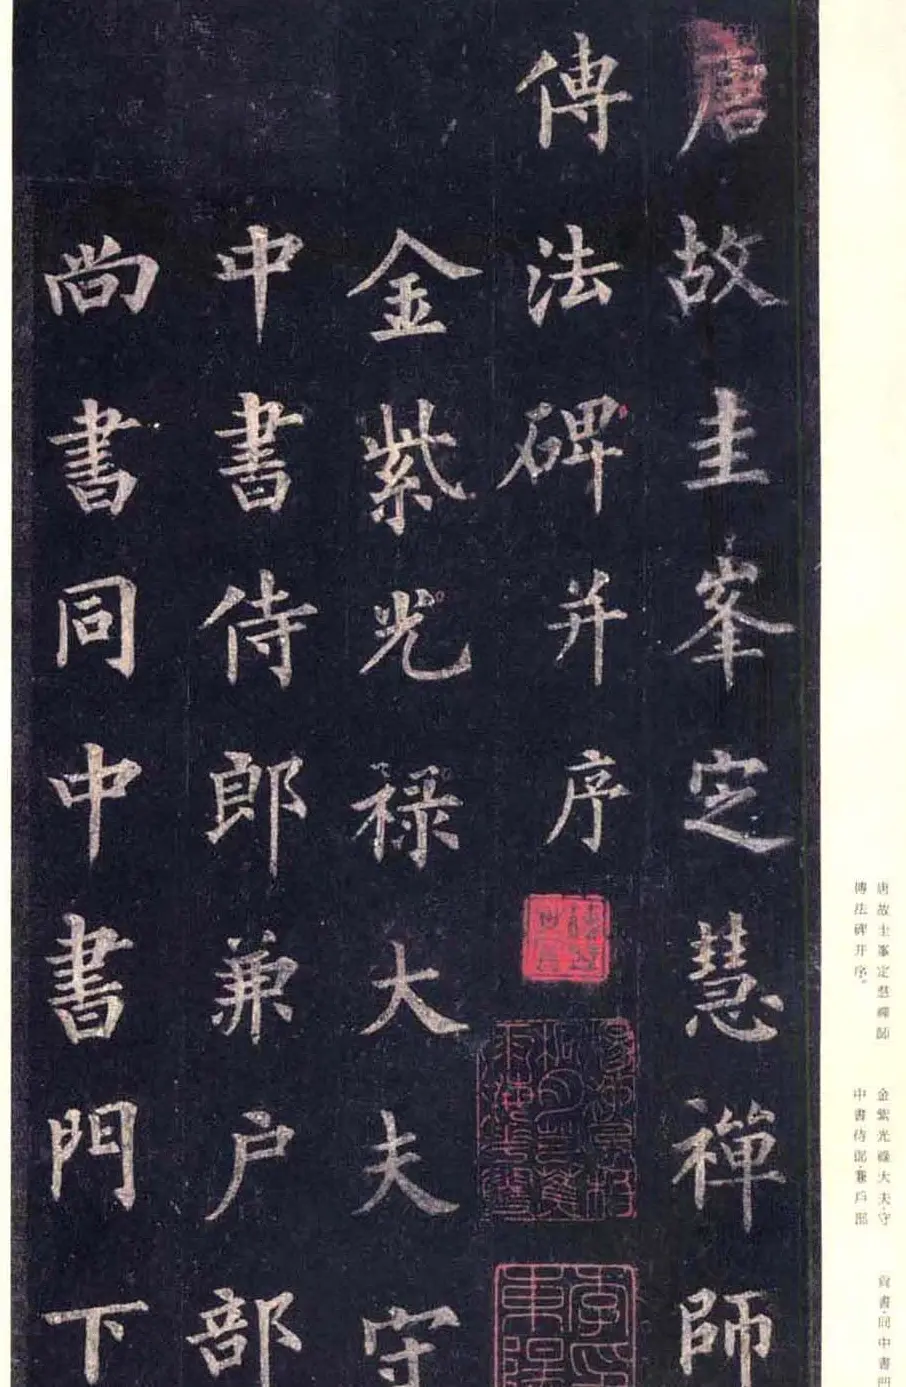 唐故圭峯定慧禪師
傳法碑并序
金紫光祿大夫守
中書侍郎兼户部
尚書同中書門下
唐故圭峯定慧禪師
傳法碑并序。
金紫光祿大夫·守
中書侍郎·兼戶部
尚書·同中書門